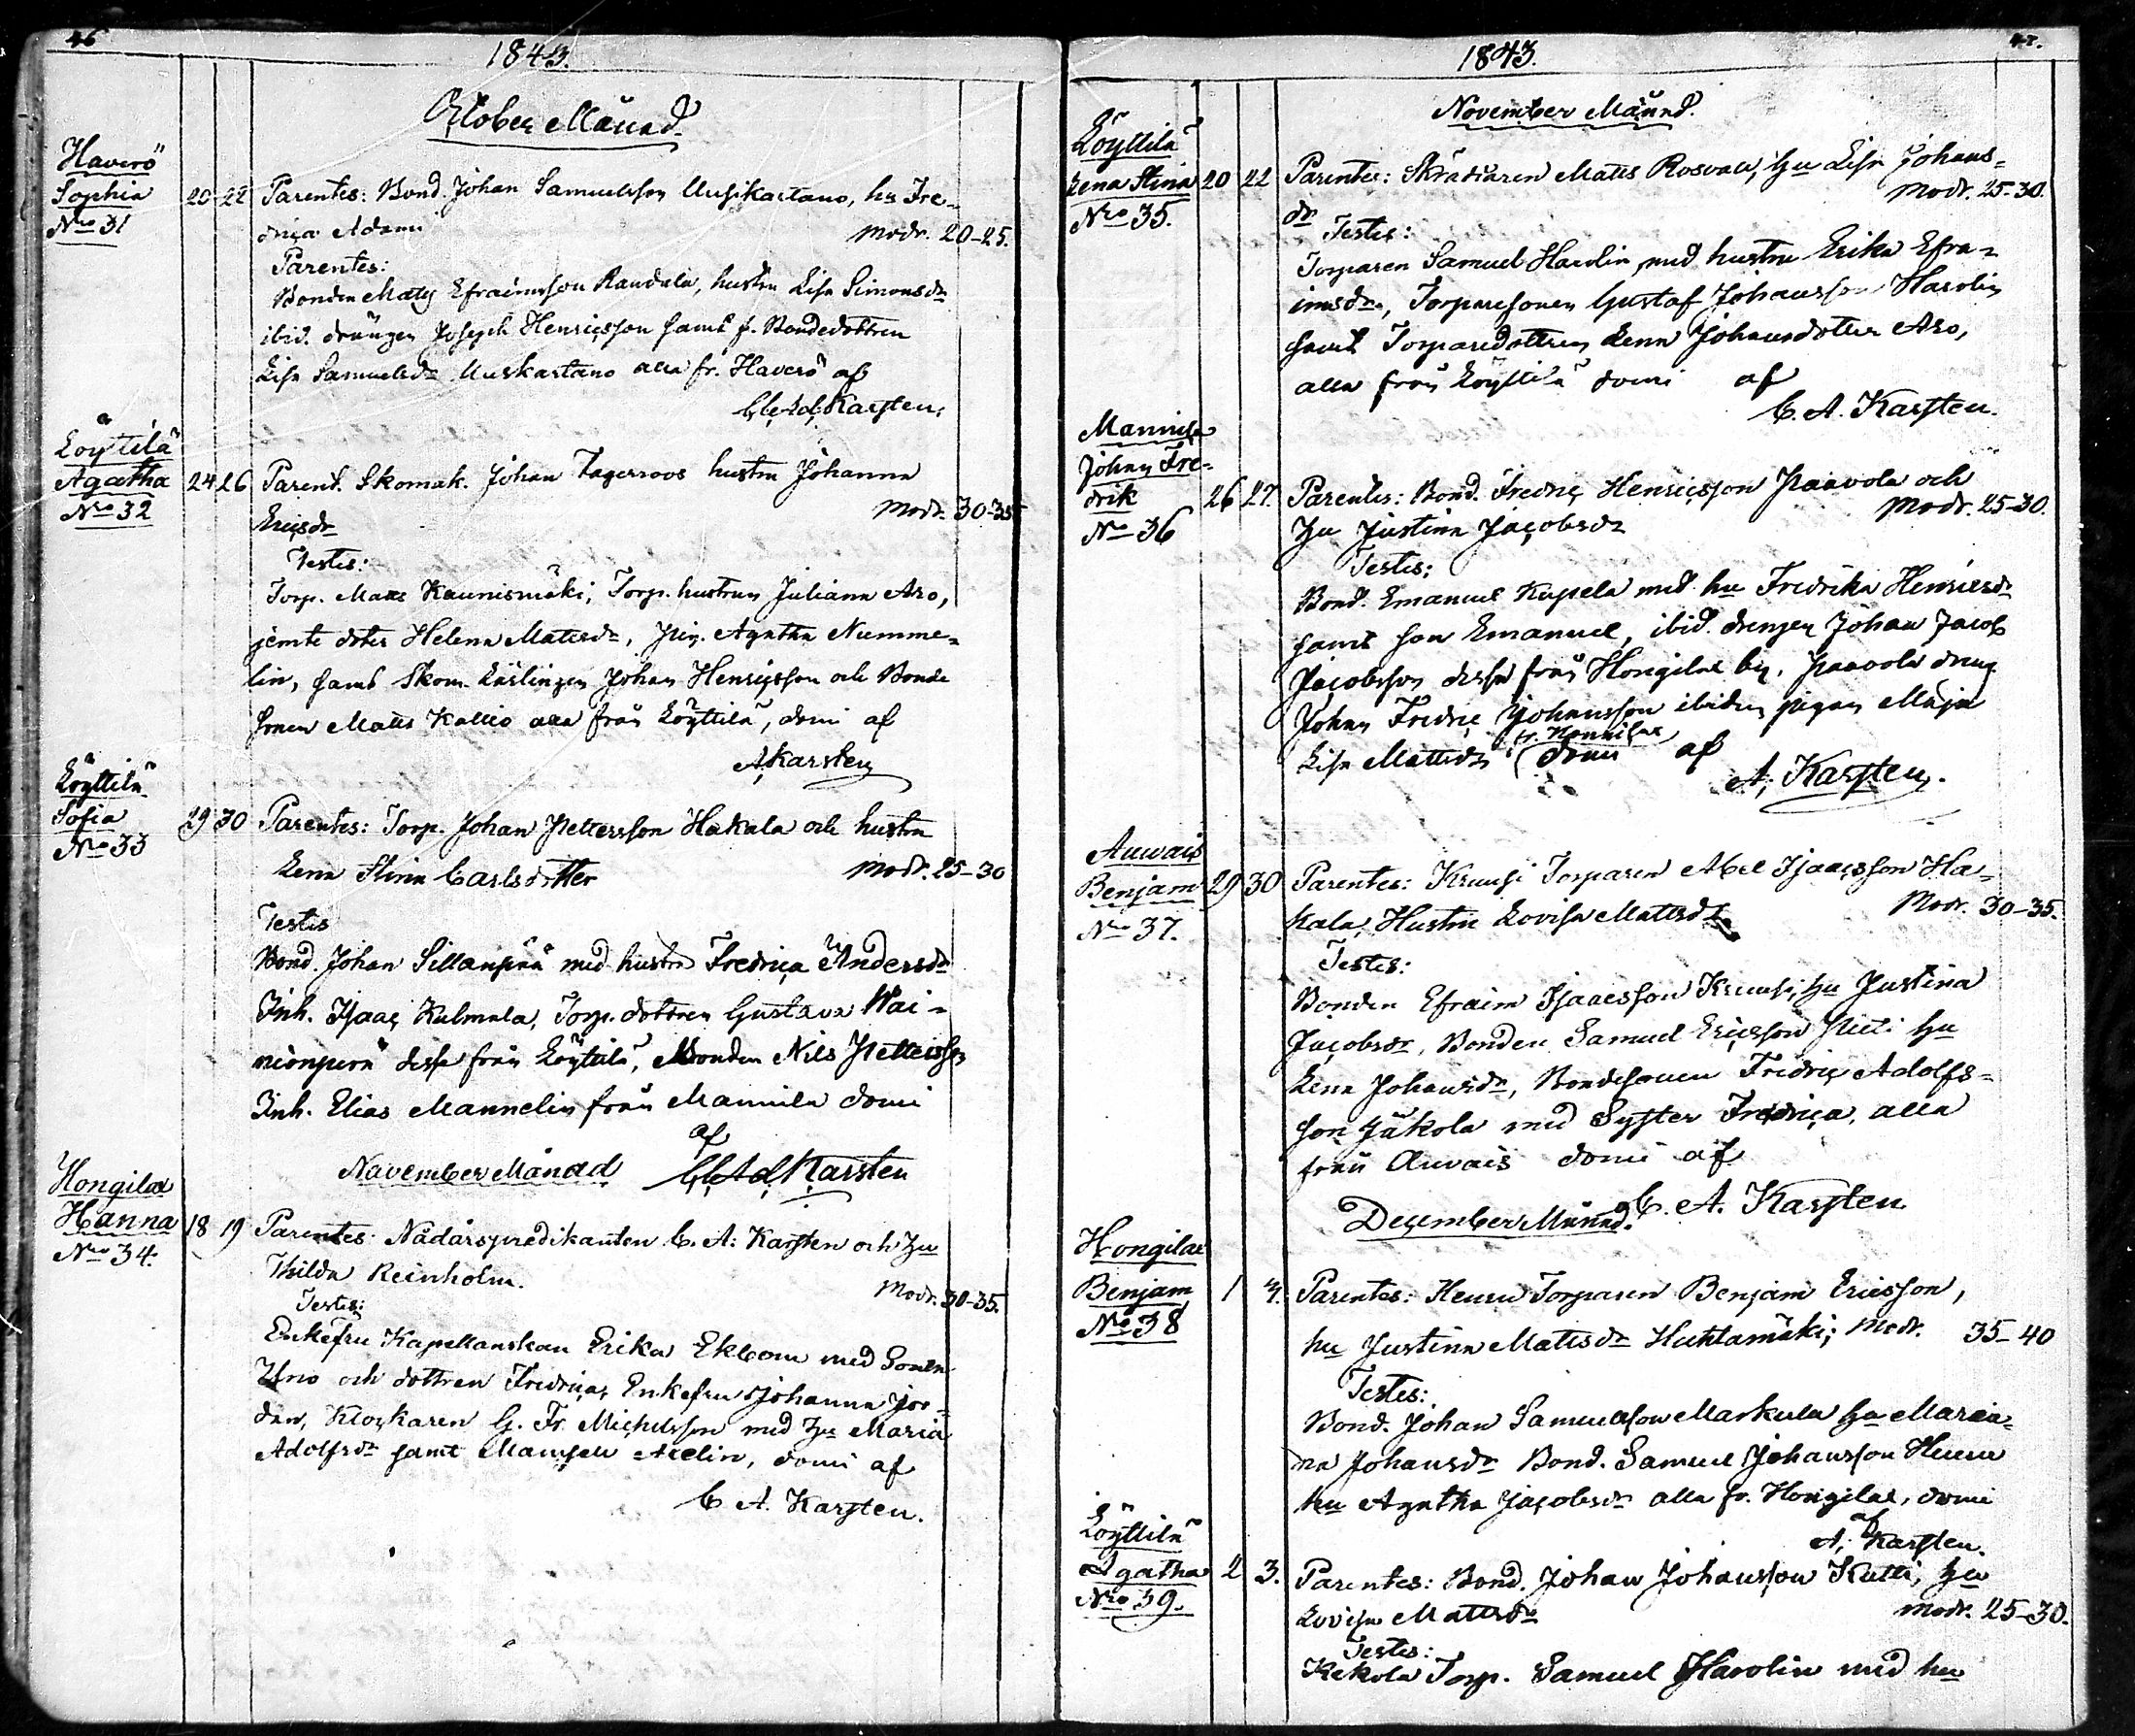 46
1843.
October Månad.
Haverö
Sophia 20 22 Parentes: Bond. Johan Samuelsson Uusikartano, hu Fre-
No 31
drica Adami Modr. 20-25.
Parentes:
Bonden Mats Efraimsson Raudala, hustru Lisa Simonsdr
ibid. drängen Joseph Henricsson samt f. Bondedottren
Lisa Samuelsdr Uuskartano alla fr. Haverö af
C. Ad. Karsten.
Löytilä
Agatha 24 26 Parent. Skomak. Johan Fagerroos hustru Johanna
No 32
Ericsdr Modr. 30-35
Testes:
Torp. Matts Kaunismäki, Torp. hustrun Juliana Aro,
jemte doter Helena Matsdr, Pig. Agatha Numme-
lin, samt Skom. Lärlingen Johan Henricsson och Bonde
sonen Matts Kallio alla från Löyttilä, domi af
A. Karsten
Löyttilä
Sofia 29 30 Parentes: Torp. Johan Pettersson Hakala och hustru
No 33
Lena Stina Carlsdotter Modr. 25-30
Testes
Bond. Johan Sillanpää med hustru Fredrica Andersdr
Inh. Isaac Kulmala, Torp. dottren Gustava Wai-
nionperä desse från Löyttilä, Bonden Nils Pettersson
Inh. Elias Mannelin från Mannila domi
af
November Månad C. Ad. Karsten
Hongilax
Hanna 18 19 Parentes: Nådårspredikanten C. A. Karsten och hu
No 34.
Thilda Reinholm. Modr. 30-35.
Testes:
Enkefru Kapellanskan Erika Ekbom med Sonen
Urno och dottren Fredrica, Enkefru Johanna Jor-
dan, Klockaren G. Fr. Michelsson med hu Maria
Adolfsdr samt Mamsell Avelin, domi af
C. A. Karsten.
47.
1843.
November Månad.
Löyttilä
Lena Stina 20 22 Parentes: Skräddaren Matts Rosvall, hu Lisa Johans-
No 35.
dr Modr. 25-30.
Testes:
Torparen Samuel Harolin med hustru Erika Efra-
imsdr, Torparesonen Gustaf Johansson Harolin
samt Torparedottren Lena Johansdotter Aro,
alla från Löyttilä domi af
C. A. Karsten.
Mannila
Johan Fre-
drik 26 27. Parentes: Bond. Fredric Henricsson Paavola och
No 36
hu Justina Jacobsdr Modr. 25-30.
Testes:
Bond. Emanuel Kupela med hu Fredrika Henricsdr
samt son Emanuel, ibid. drengen Johan Jacob
Jacobsson desse från Hongilax by, Paavola dreng
Johan Fredric Johansson ibidem pigan Maja
fr. Mannila
Lisa Mattsdr domi af
A. Karsten.
Auwais
Benjam 29 30 Parentes: Kruusi Torparen Abel Isaacsson Ha-
No 37.
kala, Hustru Lovisa Mattsdr Modr. 30-35.
Testes:
Bonden Efraim Isaacsson Kruusi, hu Justina
Jacobsdr, Bonden Samuel Ericsson Pieti hu
Lena Johansdr, Bondesonen Fredric Adolfs-
son Jäkola med Syster Fredrica, alla
från Auvais domi af
C. A. Karsten
December Månad.
Hongilax
Benjam 1 4. Parentes: Heuru Torparen Benjam Ericsson,
No 38
hu Justina Mattsdr Huhtamäki; Modr. 35-40
Testes:
Bond. Johan Samuelsson Markula hu Maria-
na Johansdr Bond. Samuel Johansson Heuru
hu Agatha Jacobsdr alla fr. Hongilax, domi
af
A. Karsten.
Löyttilä
Agatha 2 3. Parentes: Bond. Johan Johansson Kutti, hu
No 39.
Lovisa Mattsdr Modr. 25-30.
Testes:
Kekola Torp. Samuel Harolin med hu